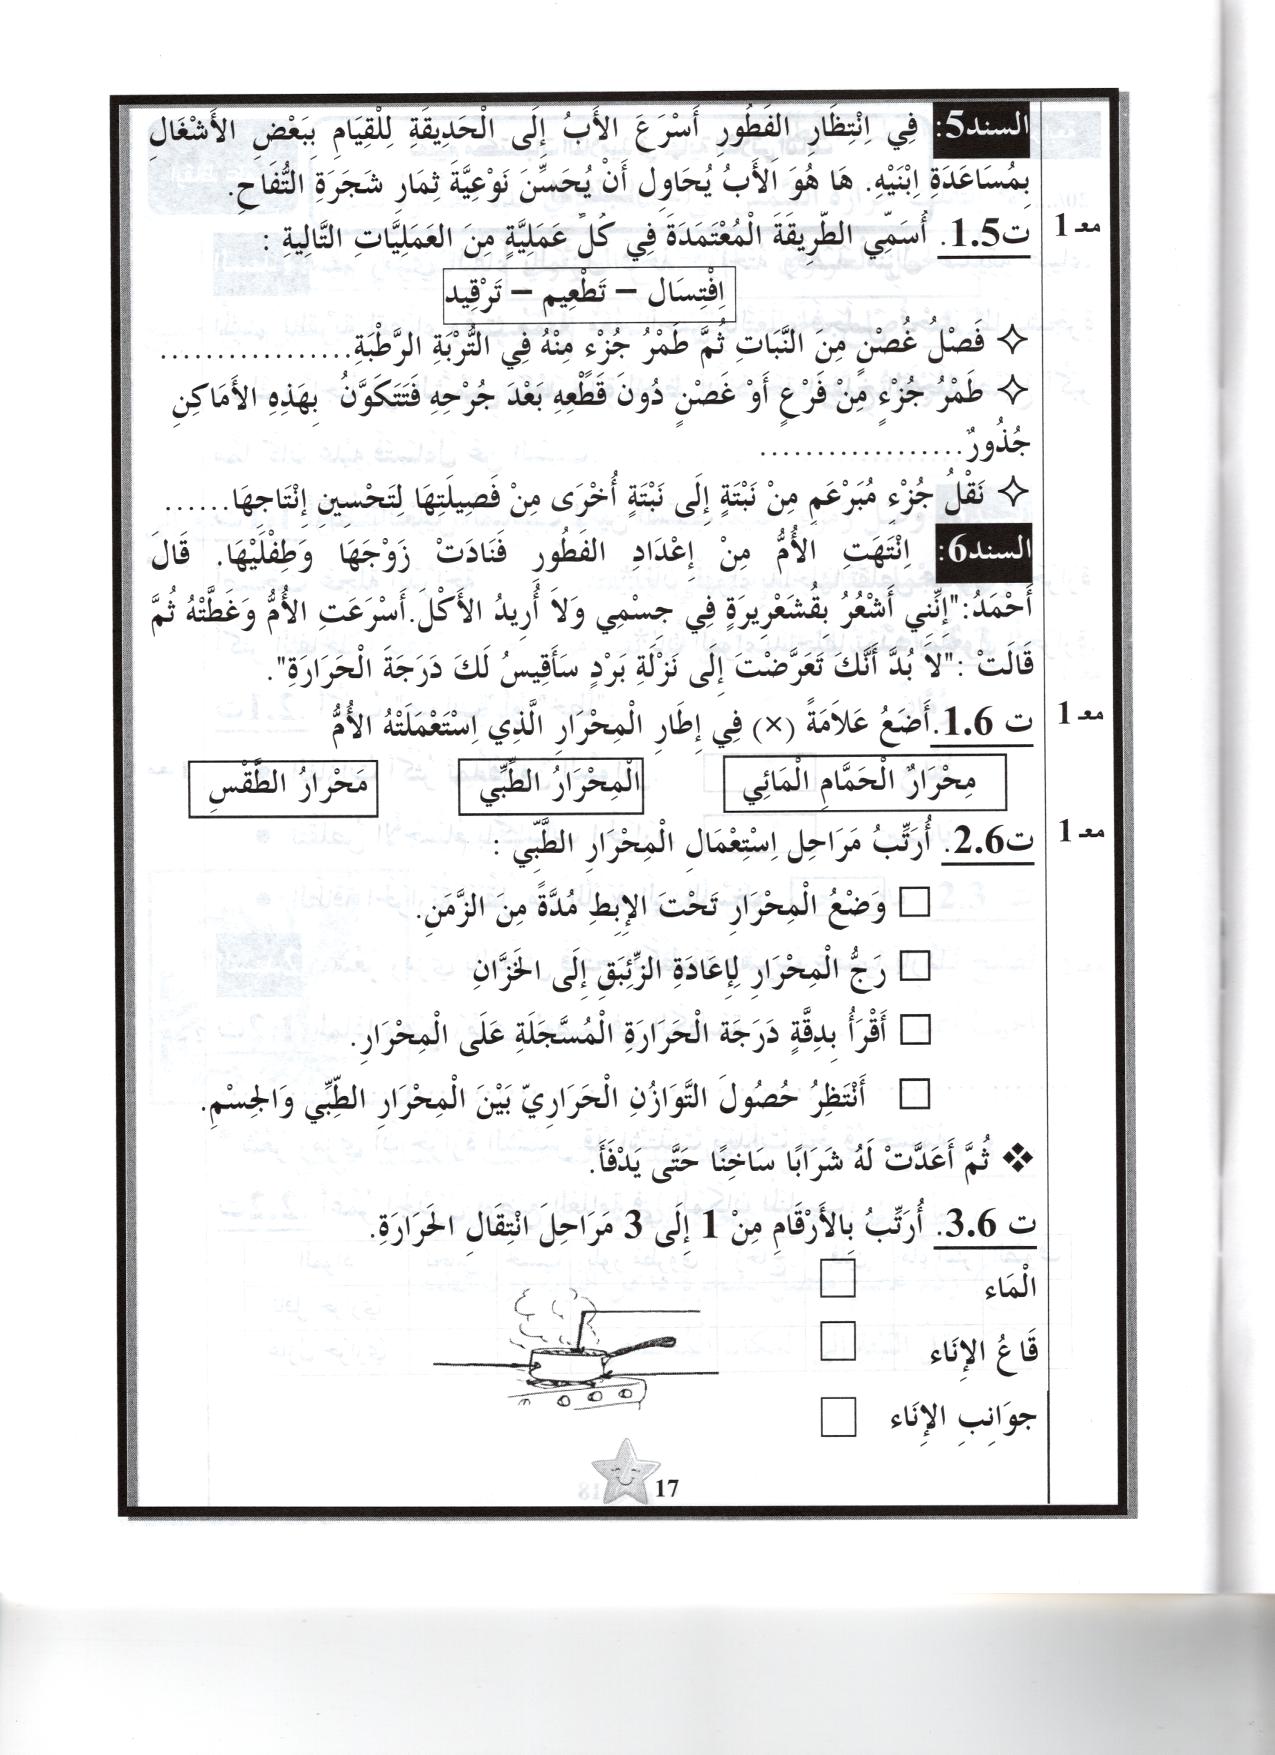 السند5: فِي اِنْتِظَارِ الفَطُورِ أَسْرَعَ الأَبُ إِلَى الْحَدِيقَةِ لِلْقِيَامِ بِبَعْضِ الأَشْغَالِ
بِمُسَاعَدَةِ اِبْنَيْهِ. هَا هُوَ الأَبُ يُحَاوِل أَنْ يُحَسِّنَ نَوْعِيَّةَ ثِمَارِ شَجَرَةِ التُّفَاحِ.
معـ 1
ت1.5. أُسَمِّي الطَّرِيقَةَ الْمُعْتَمَدَةَ فِي كُلِّ عَمَلِيَّةٍ مِنَ العَمَلِيَّاتِ التَّالِيَةِ :
اِفْتِسَال – تَطْعِيم – تَرْقِيد
✧ فَصْلُ غُصْنٍ مِنَ النَّبَاتِ ثُمَّ طَمْرُ جُزْء مِنْهُ فِي التُّرْبَةِ الرَّطْبَةِ.................
✧ طَمْرُ جُزْءٍ مِنْ فَرْعٍ أَوْ غَصْنٍ دُونَ قَطْعِهِ بَعْدَ جُرْحِهِ فَتَتَكَوَّنُ بِهَذِهِ الأَمَاكِنِ
جُذُورٌ..................
✧ نَقْلُ جُزْءٍ مُبَرْعَمٍ مِنْ نَبْتَةٍ إِلَى نَبْتَةٍ أُخْرَى مِنْ فَصِيلَتِهَا لِتَحْسِينِ إِنْتَاجِهَا......
السند6: اِنْتَهَتِ الأُمُّ مِنْ إِعْدَادِ الفَطُورِ فَنَادَتْ زَوْجَهَا وَطِفْلَيْهَا. قَالَ
أَحْمَدُ:"إِنَّنِي أَشْعُرُ بِقُشَعْرِيرَةٍ فِي جِسْمِي وَلاَ أُرِيدُ الأَكْلَ.أَسْرَعَتِ الأُمُّ وَغَطَّتْهُ ثُمَّ
قَالَتْ :"لاَ بُدَّ أَنَّكَ تَعَرَّضْتَ إِلَى نَزْلَةِ بَرْدٍ سَأَقِيسُ لَكَ دَرَجَةَ الْحَرَارَةِ".
معـ 1
ت 1.6.أَضَعُ عَلاَمَةً (×) فِي إِطَارِ الْمِحْرَارِ الَّذِي اِسْتَعْمَلَتْهُ الأُمُّ
مِحْرَارٌ الْحَمَّامِ الْمَائِي الْمِحْرَارُ الطِّبِّي مَحْرَارُ الطَّقْسِ
معـ 1
ت2.6. أُرَتِّبُ مَرَاحِلِ اِسْتِعْمَالِ الْمِحْرَارِ الطِّبِّي :
□ وَضْعُ الْمِحْرَارِ تَحْتَ الإِبِطِ مُدَّةً مِنَ الزَّمَنِ.
□ رَجُّ الْمِحْرَارِ لِإِعَادَةِ الزِّئْبَقِ إِلَى الخَزَّانِ
□ أَقْرَأُ بِدِقَّةٍ دَرَجَةَ الْحَرَارَةِ الْمُسَّجَلَةِ عَلَى الْمِحْرَارِ.
□ أَنْتَظِرُ حُصُولَ التَّوَازُنِ الْحَرَارِيّ بَيْنَ الْمِحْرَارِ الطِّبِّي وَالجِسْمِ.
❖ ثُمَّ أَعَدَّتْ لَهُ شَرَابًا سَاخِنًا حَتَّى يَدْفَأَ.
ت 3.6. أُرَتِّبُ بِالأَرْقَامِ مِنْ 1 إِلَى 3 مَرَاحِلَ انْتِقَالِ الحَرَارَةِ.
الْمَاء □
قَاعُ الإِنَاء □
جوَانِبِ الإِنَاء □
17